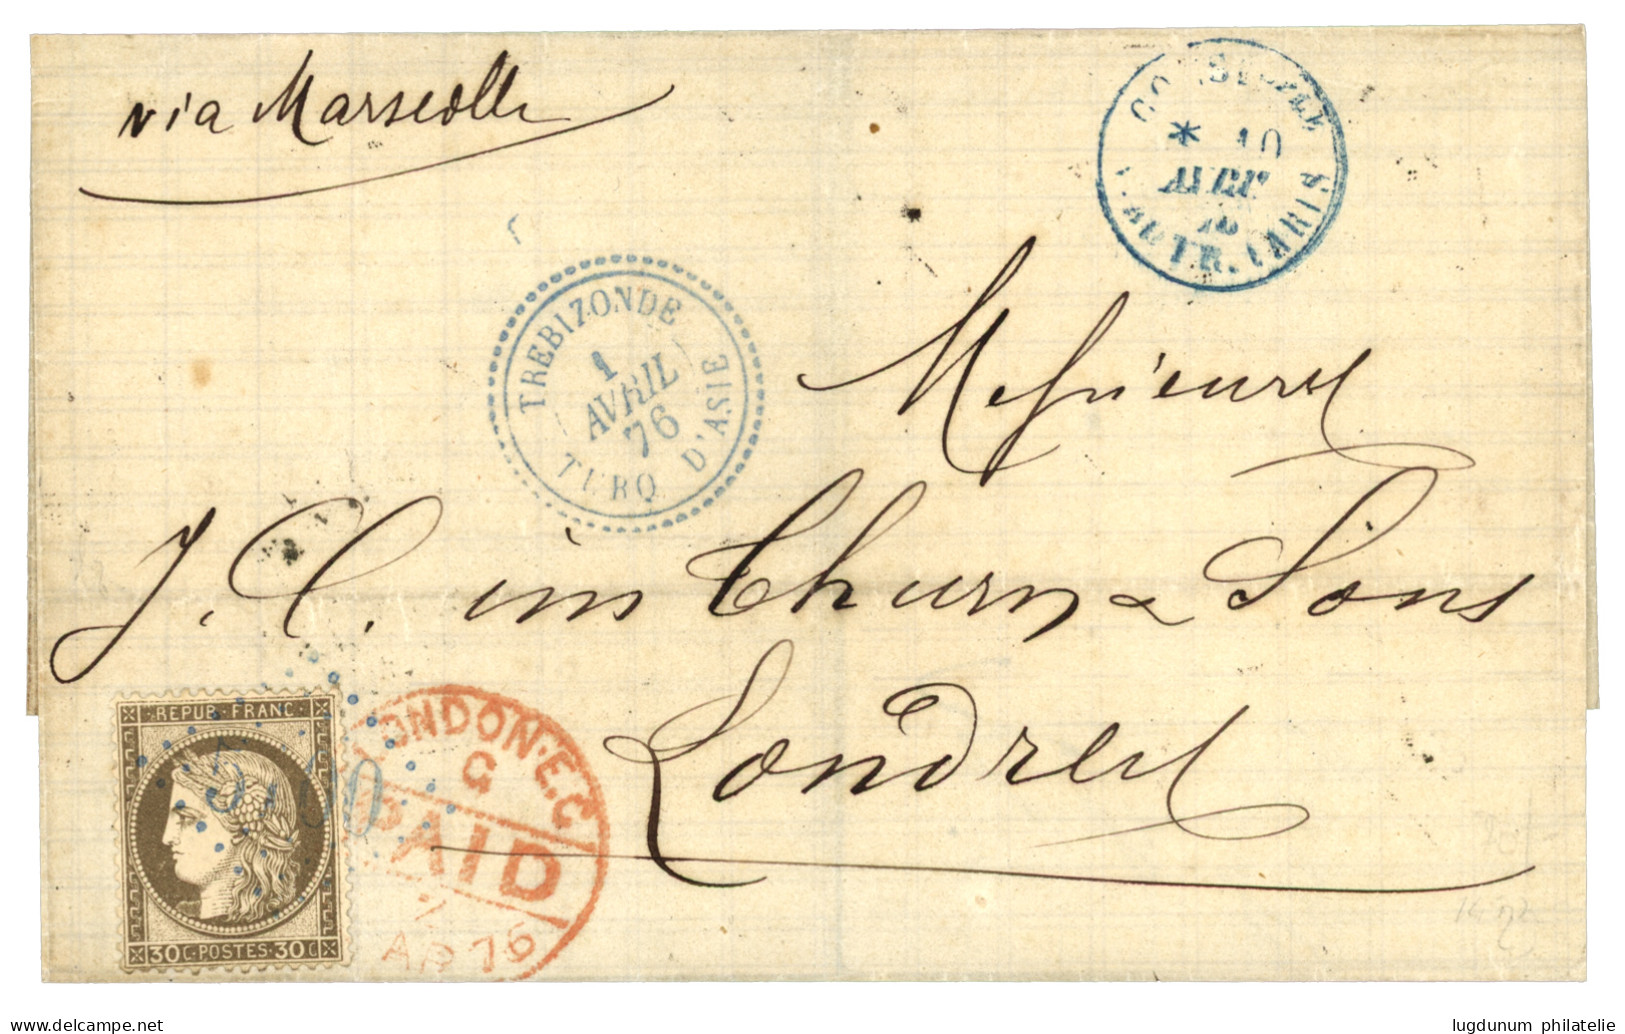 via Marseille
* 10
AVRIL
TREBIZONDE
1
AVRIL
76
TURQ D'ASIE
Messieurs
J. C. im Thurn & Sons
Londres
REPUB·FRANC·
30 C·POSTES·30 C
LONDON·E.C
G
PAID
AP 76
www.delcampe.net
lugdunum philatelie